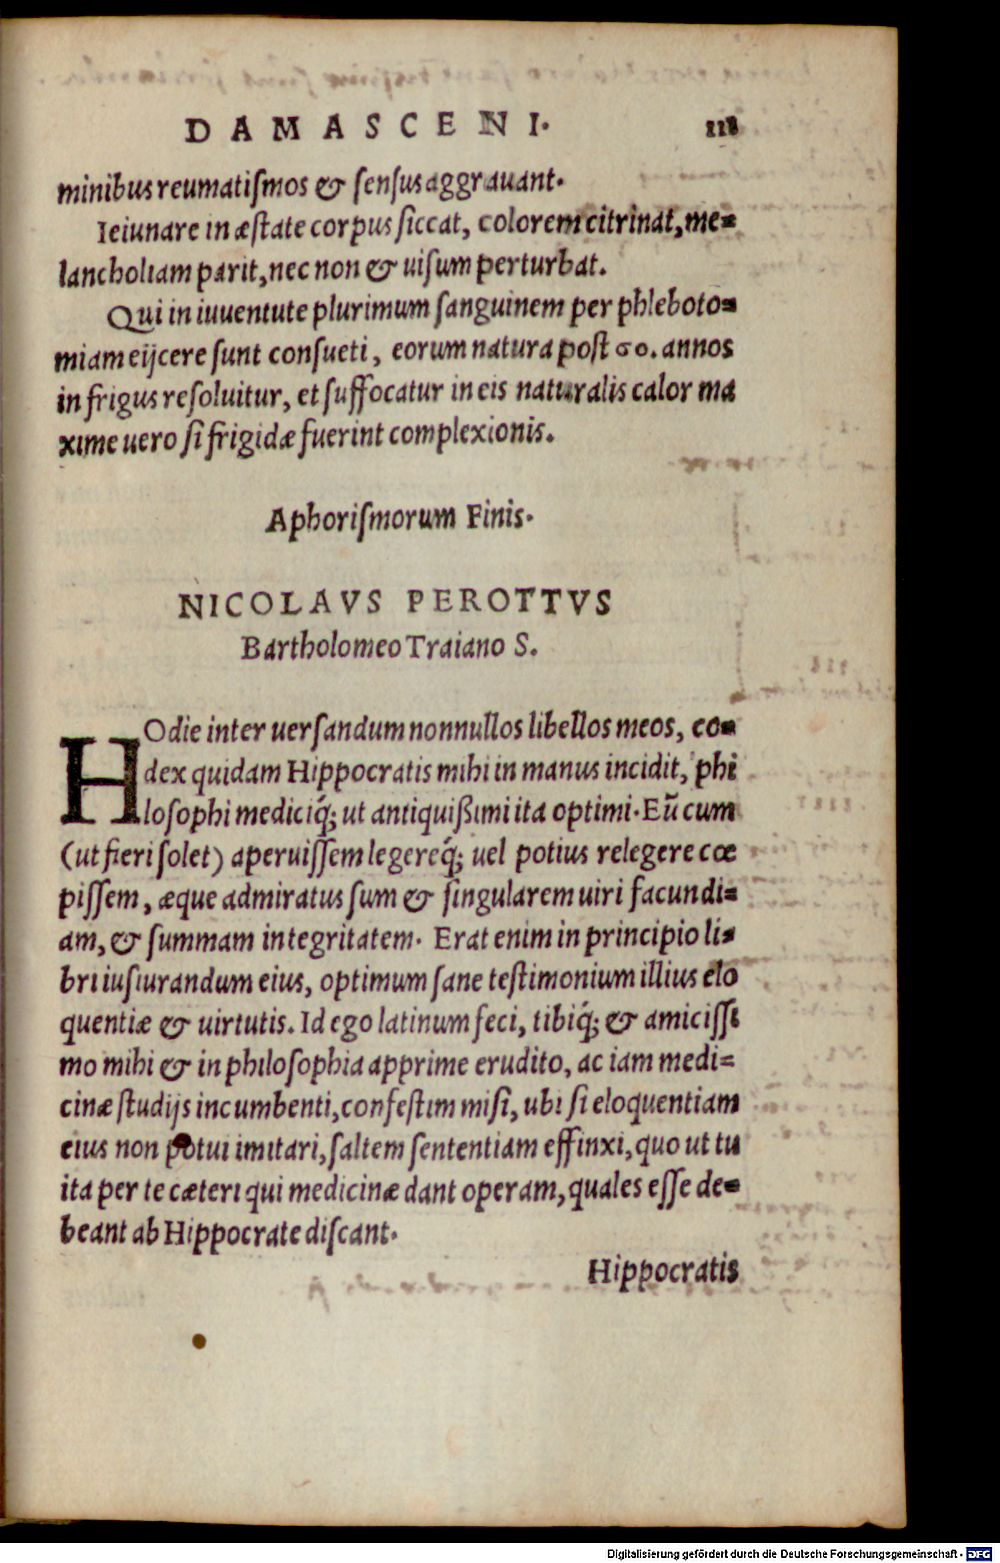 DAMASCENI. 118
minibus reumatiſmos & ſenſus aggrauant.
Ieiunare in æſtate corpus ſiccat, colorem citrinat, me=
lancholiam parit, nec non & uiſum perturbat.
Qui in iuuentute plurimum ſanguinem per phleboto=
miam eijcere ſunt conſueti, eorum natura poſt 60. annos
in frigus reſoluitur, et ſuffocatur in eis naturalis calor ma
xime uero ſi frigidæ fuerint complexionis.
Aphoriſmorum Finis.
NICOLAVS PEROTTVS
Bartholomeo Traiano S.
HOdie inter uerſandum nonnullos libellos meos, co=
dex quidam Hippocratis mihi in manus incidit, phi
loſophi mediciq́; ut antiquißimi ita optimi. Eũ cum
(ut fieri ſolet) aperuiſſem legereq́; uel potius relegere cœ
piſſem, æque admiratus ſum & ſingularem uiri facundi=
am, & ſummam integritatem. Erat enim in principio li=
bri iuſiurandum eius, optimum ſane teſtimonium illius elo
quentiæ & uirtutis. Id ego latinum feci, tibiq́; & amiciſſi
mo mihi & in philoſophia apprime erudito, ac iam medi=
cinæ ſtudijs incumbenti, confeſtim miſi, ubi ſi eloquentiam
eius non potui imitari, ſaltem ſententiam effinxi, quo ut tu
ita per te cæteri qui medicinæ dant operam, quales eſſe de=
beant ab Hippocrate diſcant.
Hippocratis
Digitalisierung gefördert durch die Deutsche Forschungsgemeinschaft - DFG